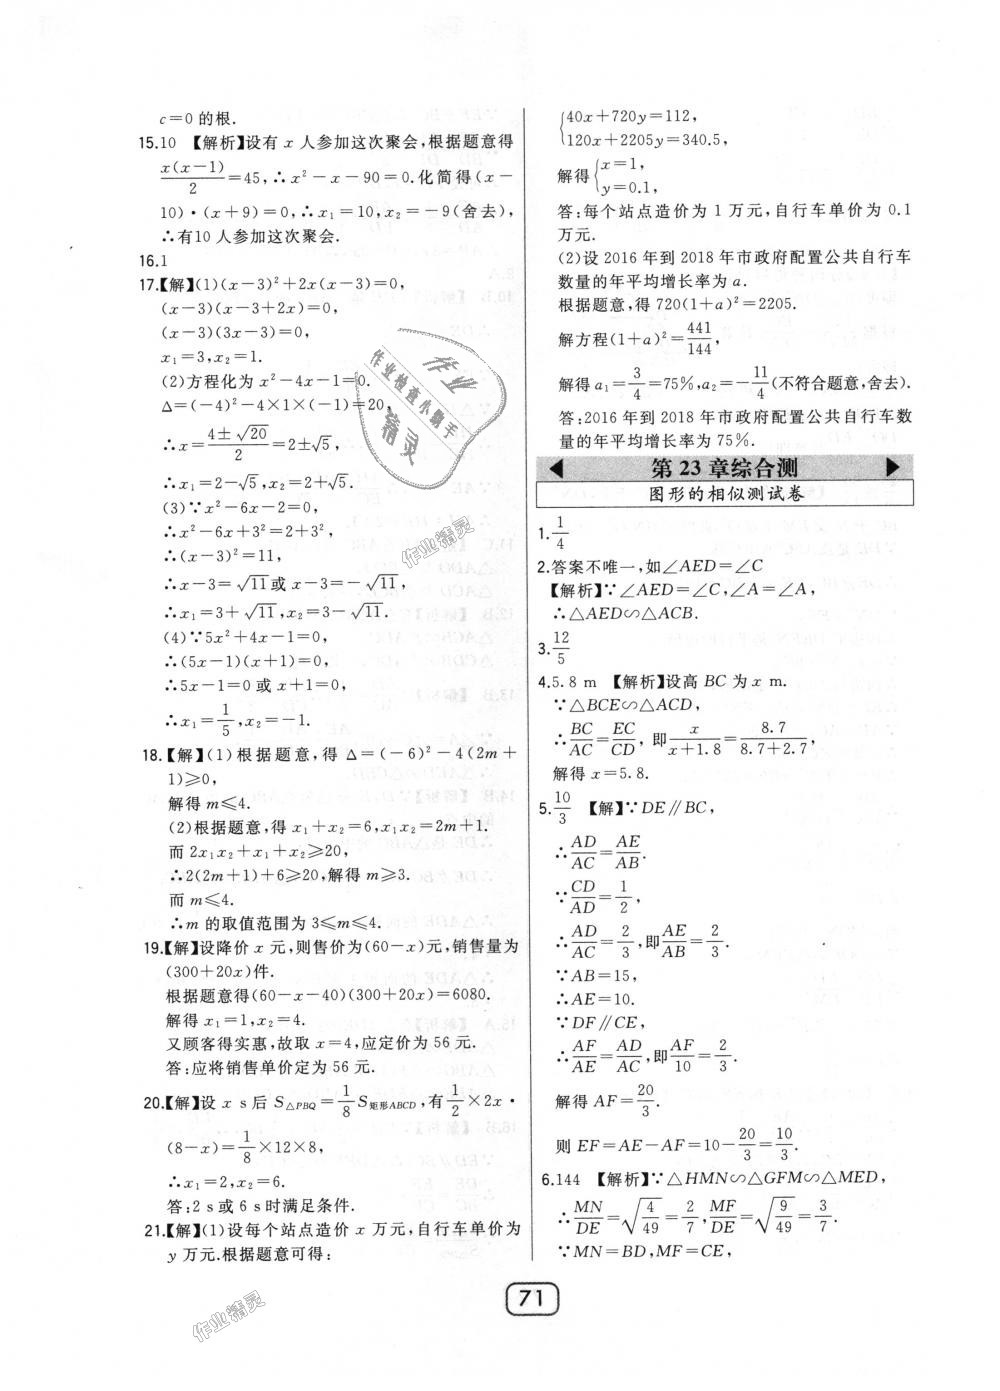 c=0的根.
15.10 【解析】设有 x 人参加这次聚会,根据题意得
x(x-1)/2=45,∴x²-x-90=0.化简得(x-
10)·(x+9)=0,∴x₁=10,x₂=-9(舍去),
∴有10人参加这次聚会.
16.1
17.【解】(1)(x-3)²+2x(x-3)=0,
(x-3)(x-3+2x)=0,
(x-3)(3x-3)=0,
x₁=3,x₂=1.
(2)方程化为 x²-4x-1=0.
Δ=(-4)²-4×1×(-1)=20,
∴x=(4±√20)/2=2±√5,
∴x₁=2-√5,x₂=2+√5.
(3)∵x²-6x-2=0,
∴x²-6x+3²=2+3²,
∴(x-3)²=11,
∴x-3=√11或 x-3=-√11,
∴x₁=3+√11,x₂=3-√11.
(4)∵5x²+4x-1=0,
∴(5x-1)(x+1)=0,
∴5x-1=0或 x+1=0,
∴x₁=1/5,x₂=-1.
18.【解】(1)根据题意,得 Δ=(-6)²-4(2m+
1)⩾0,
解得 m⩽4.
(2)根据题意,得 x₁+x₂=6,x₁x₂=2m+1.
而 2x₁x₂+x₁+x₂⩾20,
∴2(2m+1)+6⩾20,解得 m⩾3.
而 m⩽4.
∴m 的取值范围为 3⩽m⩽4.
19.【解】设降价 x 元,则售价为(60-x)元,销售量为
(300+20x)件.
根据题意得(60-x-40)(300+20x)=6080.
解得 x₁=1,x₂=4.
又顾客得实惠,故取 x=4,应定价为 56 元.
答:应将销售单价定为 56 元.
20.【解】设 x s后 S△PBQ=1/8 S矩形ABCD,有 1/2×2x·
(8-x)=1/8×12×8,
∴x₁=2,x₂=6.
答:2 s或 6 s时满足条件.
21.【解】(1)设每个站点造价 x 万元,自行车单价为
y 万元.根据题意可得:
{40x+720y=112,
120x+2205y=340.5,
解得{x=1,
y=0.1,
答:每个站点造价为 1 万元,自行车单价为 0.1
万元.
(2)设 2016 年到 2018 年市政府配置公共自行车
数量的年平均增长率为 a.
根据题意,得 720(1+a)²=2205.
解方程(1+a)²=441/144,
解得 a₁=3/4=75%,a₂=-11/4(不符合题意,舍去).
答:2016 年到 2018 年市政府配置公共自行车数
量的年平均增长率为 75%.
第 23 章综合测
图形的相似测试卷
1.1/4
2.答案不唯一,如∠AED=∠C
【解析】∵∠AED=∠C,∠A=∠A,
∴△AED∽△ACB.
3.12/5
4.5.8 m 【解析】设高 BC 为 x m.
∵△BCE∽△ACD,
∴BC/AC=EC/CD,即 x/(x+1.8)=8.7/(8.7+2.7),
解得 x=5.8.
5.10/3 【解】∵DE∥BC,
∴AD/AC=AE/AB.
∵CD/AD=1/2,
∴AD/AC=2/3,即AE/AB=2/3.
∵AB=15,
∴AE=10.
∵DF∥CE,
∴AF/AE=AD/AC,即AF/10=2/3.
解得 AF=20/3.
则 EF=AE-AF=10-20/3=10/3.
6.144 【解析】∵△HMN∽△GFM∽△MED,
∴MN/DE=√(4/49)=2/7,MF/DE=√(9/49)=3/7.
∵MN=BD,MF=CE,
71
作业检查小助手
作业精灵
作业精灵
作业精灵